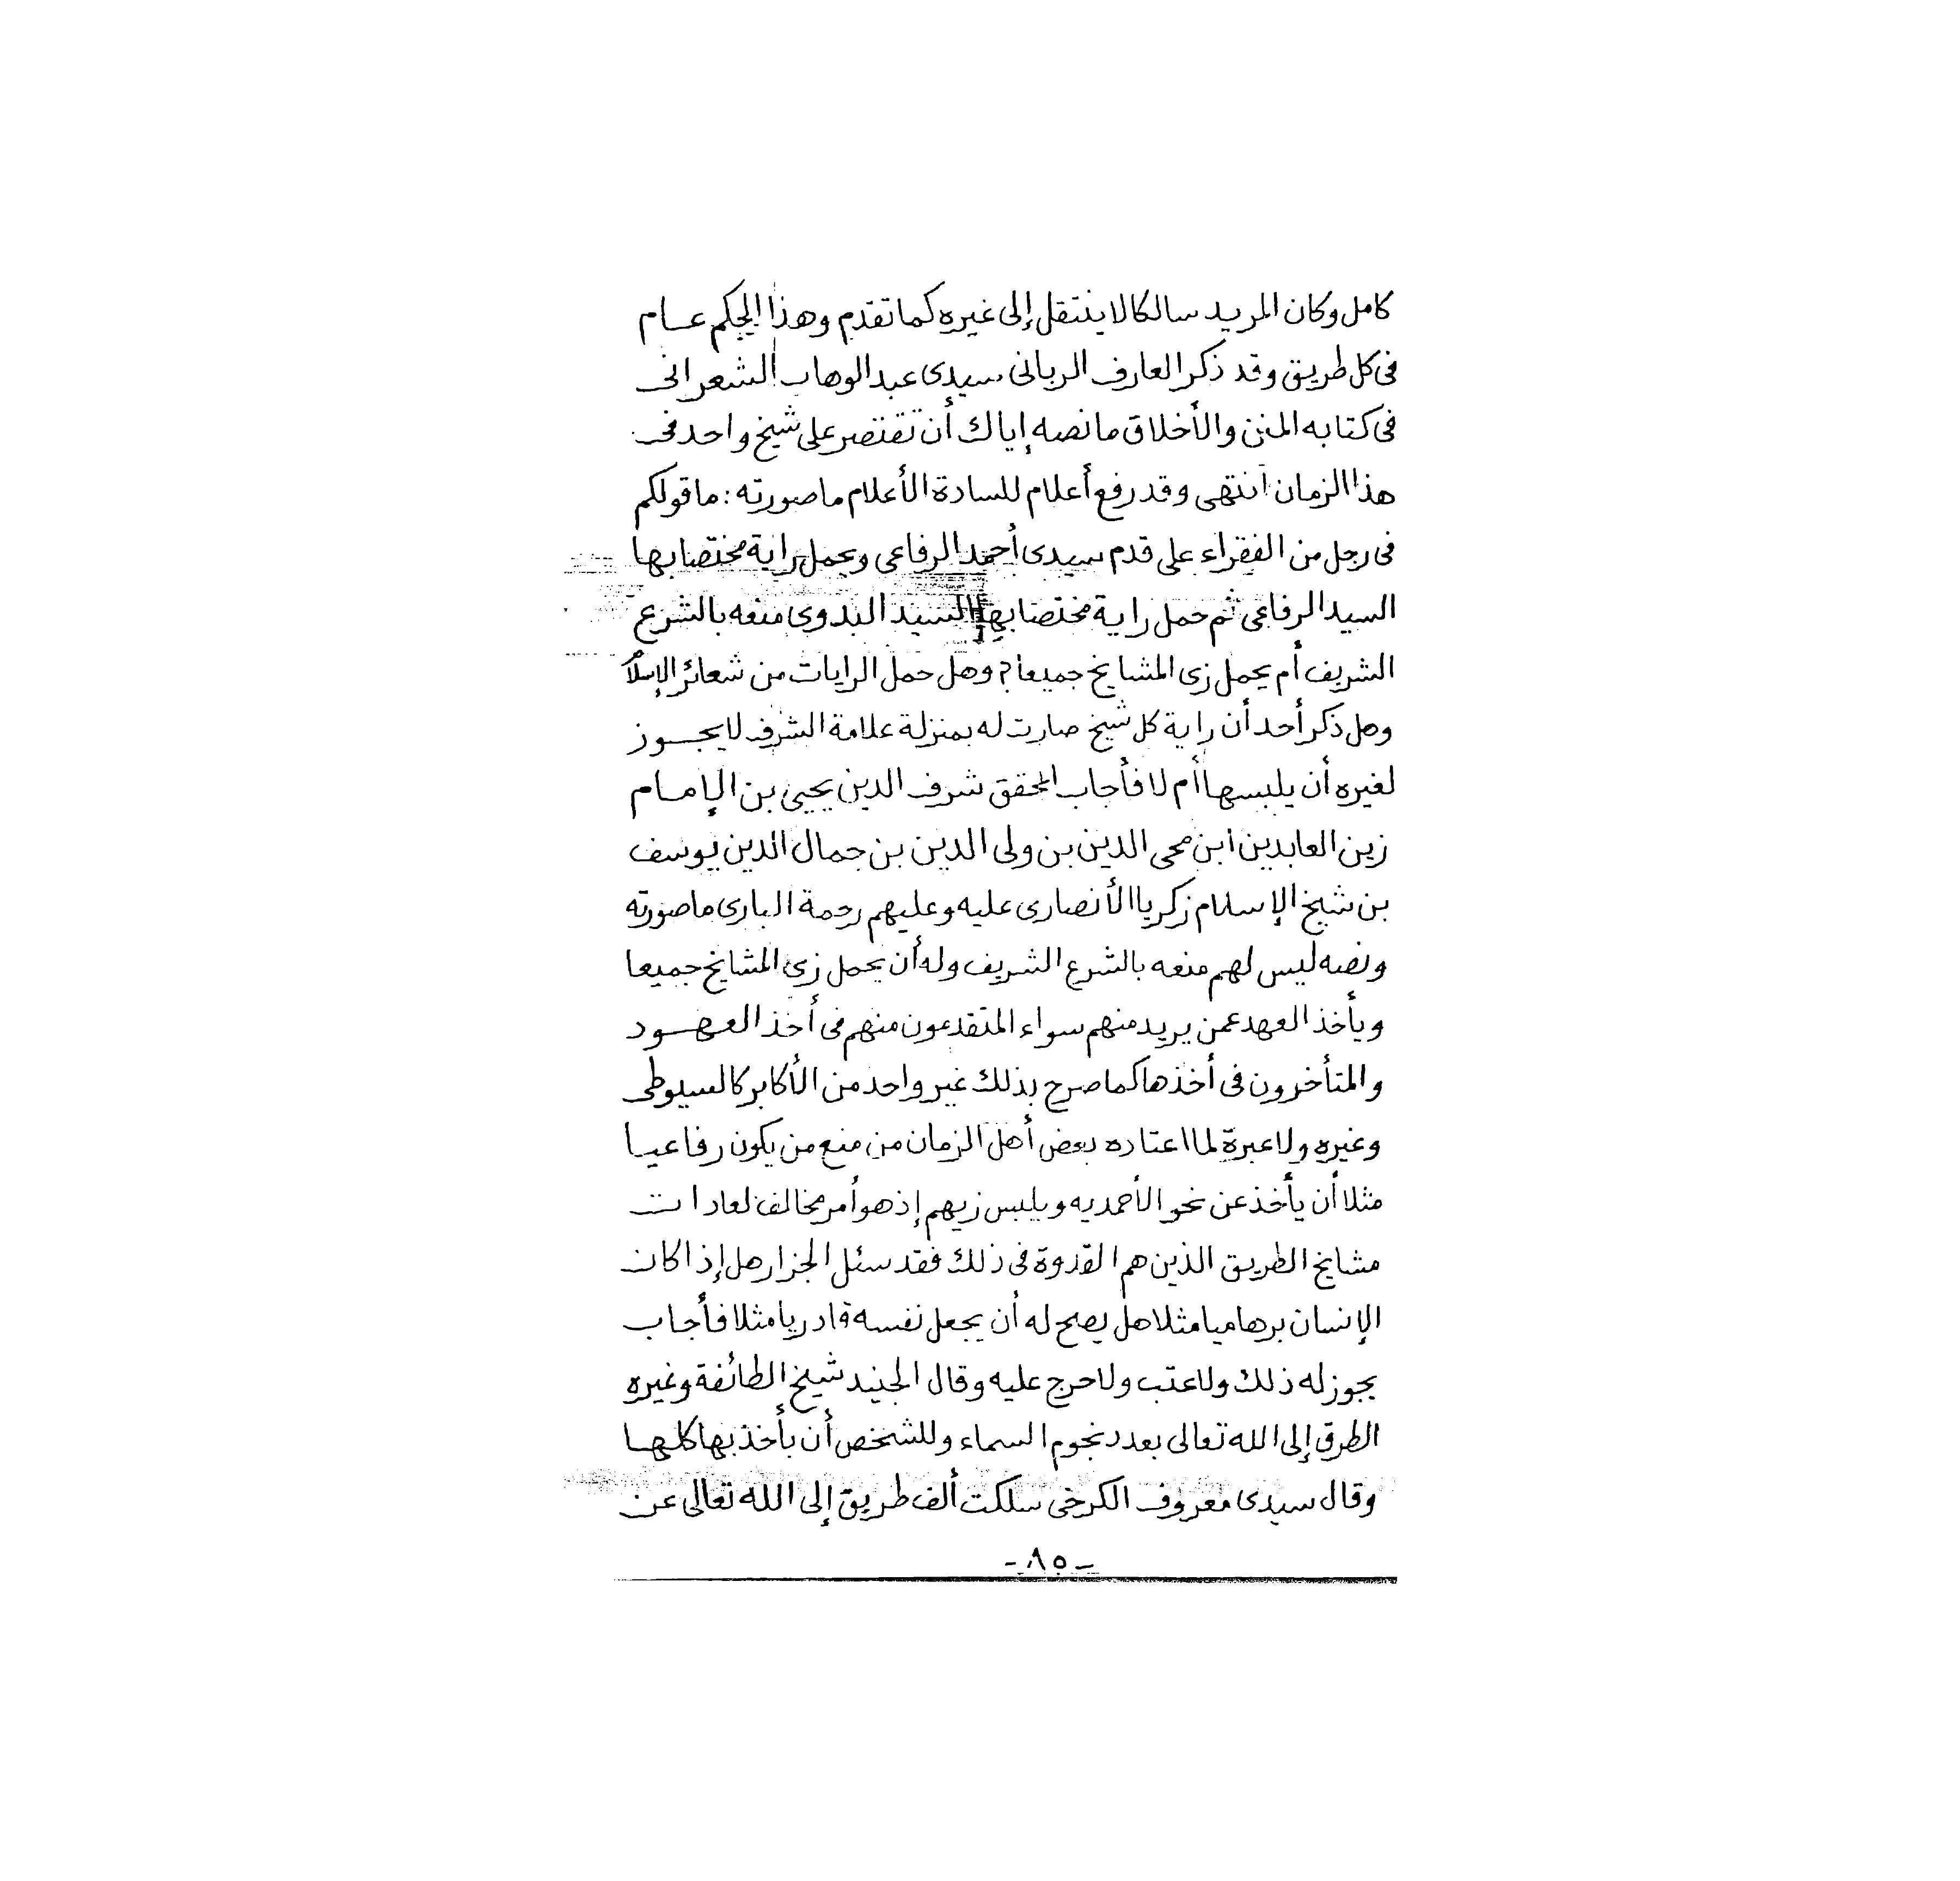 كامل وكان المريد سالكا لا ينتقل إلى غيره كما تقدم وهذا الحكم عام
فى كل طريق وقد ذكر العارف الربانى سيدى عبد الوهاب الشعرانى
فى كتابه المنن والأخلاق ما نصه إياك أن تقتصر على شيخ واحد فى
هذا الزمان انتهى وقد رفع أعلام للسادة الأعلام ما صورته : ما قولكم
فى رجل من الفقراء على قدم سيدى أحمد الرفاعى وعمل راية مختصا بها
السيد الرفاعى ثم حمل راية مختصا بها السيد البدوى منعه بالشرع
الشريف أم يحمل زى المشايخ جميعا ؟ وهل حمل الرايات من شعائر الإسلام
وهل ذكر أحد أن راية كل شيخ صارت له بمنزلة علامة الشرف لا يجوز
لغيره أن يلبسها أم لا فأجاب المحقق شرف الدين يحيى بن الإمام
زين العابدين ابن محى الدين بن ولى الدين بن جمال الدين يوسف
بن شيخ الإسلام زكريا الأنصارى عليه وعليهم رحمة البارى ما صورته
ونصه ليس لهم منعه بالشرع الشريف وله أن يحمل زى المشايخ جميعا
ويأخذ العهد عمن يريد منهم سواء المتقدمون منهم فى أخذ العهود
والمتأخرون فى أخذها كما صرح بذلك غير واحد من الأكابر كالسيوطى
وغيره ولا عبرة لما اعتاده بعض أهل الزمان من منع من يكون رفاعيا
مثلا أن يأخذ عن نحو الأحمديه ويلبس زيهم إذ هو أمر مخالف لعادات
مشايخ الطريق الذين هم القدوة فى ذلك فقد سئل الجزار هل إذا كان
الإنسان برهاميا مثلا هل يصح له أن يجعل نفسه قادريا مثلا فأجاب
يجوز له ذلك ولا عتب ولا حرج عليه وقال الجنيد شيخ الطائفة وغيره
الطرق إلى الله تعالى بعدد نجوم السماء وللشخص أن يأخذ بها كلها
وقال سيدى معروف الكرخى سلكت ألف طريق إلى الله تعالى عن
- ٨٥ -